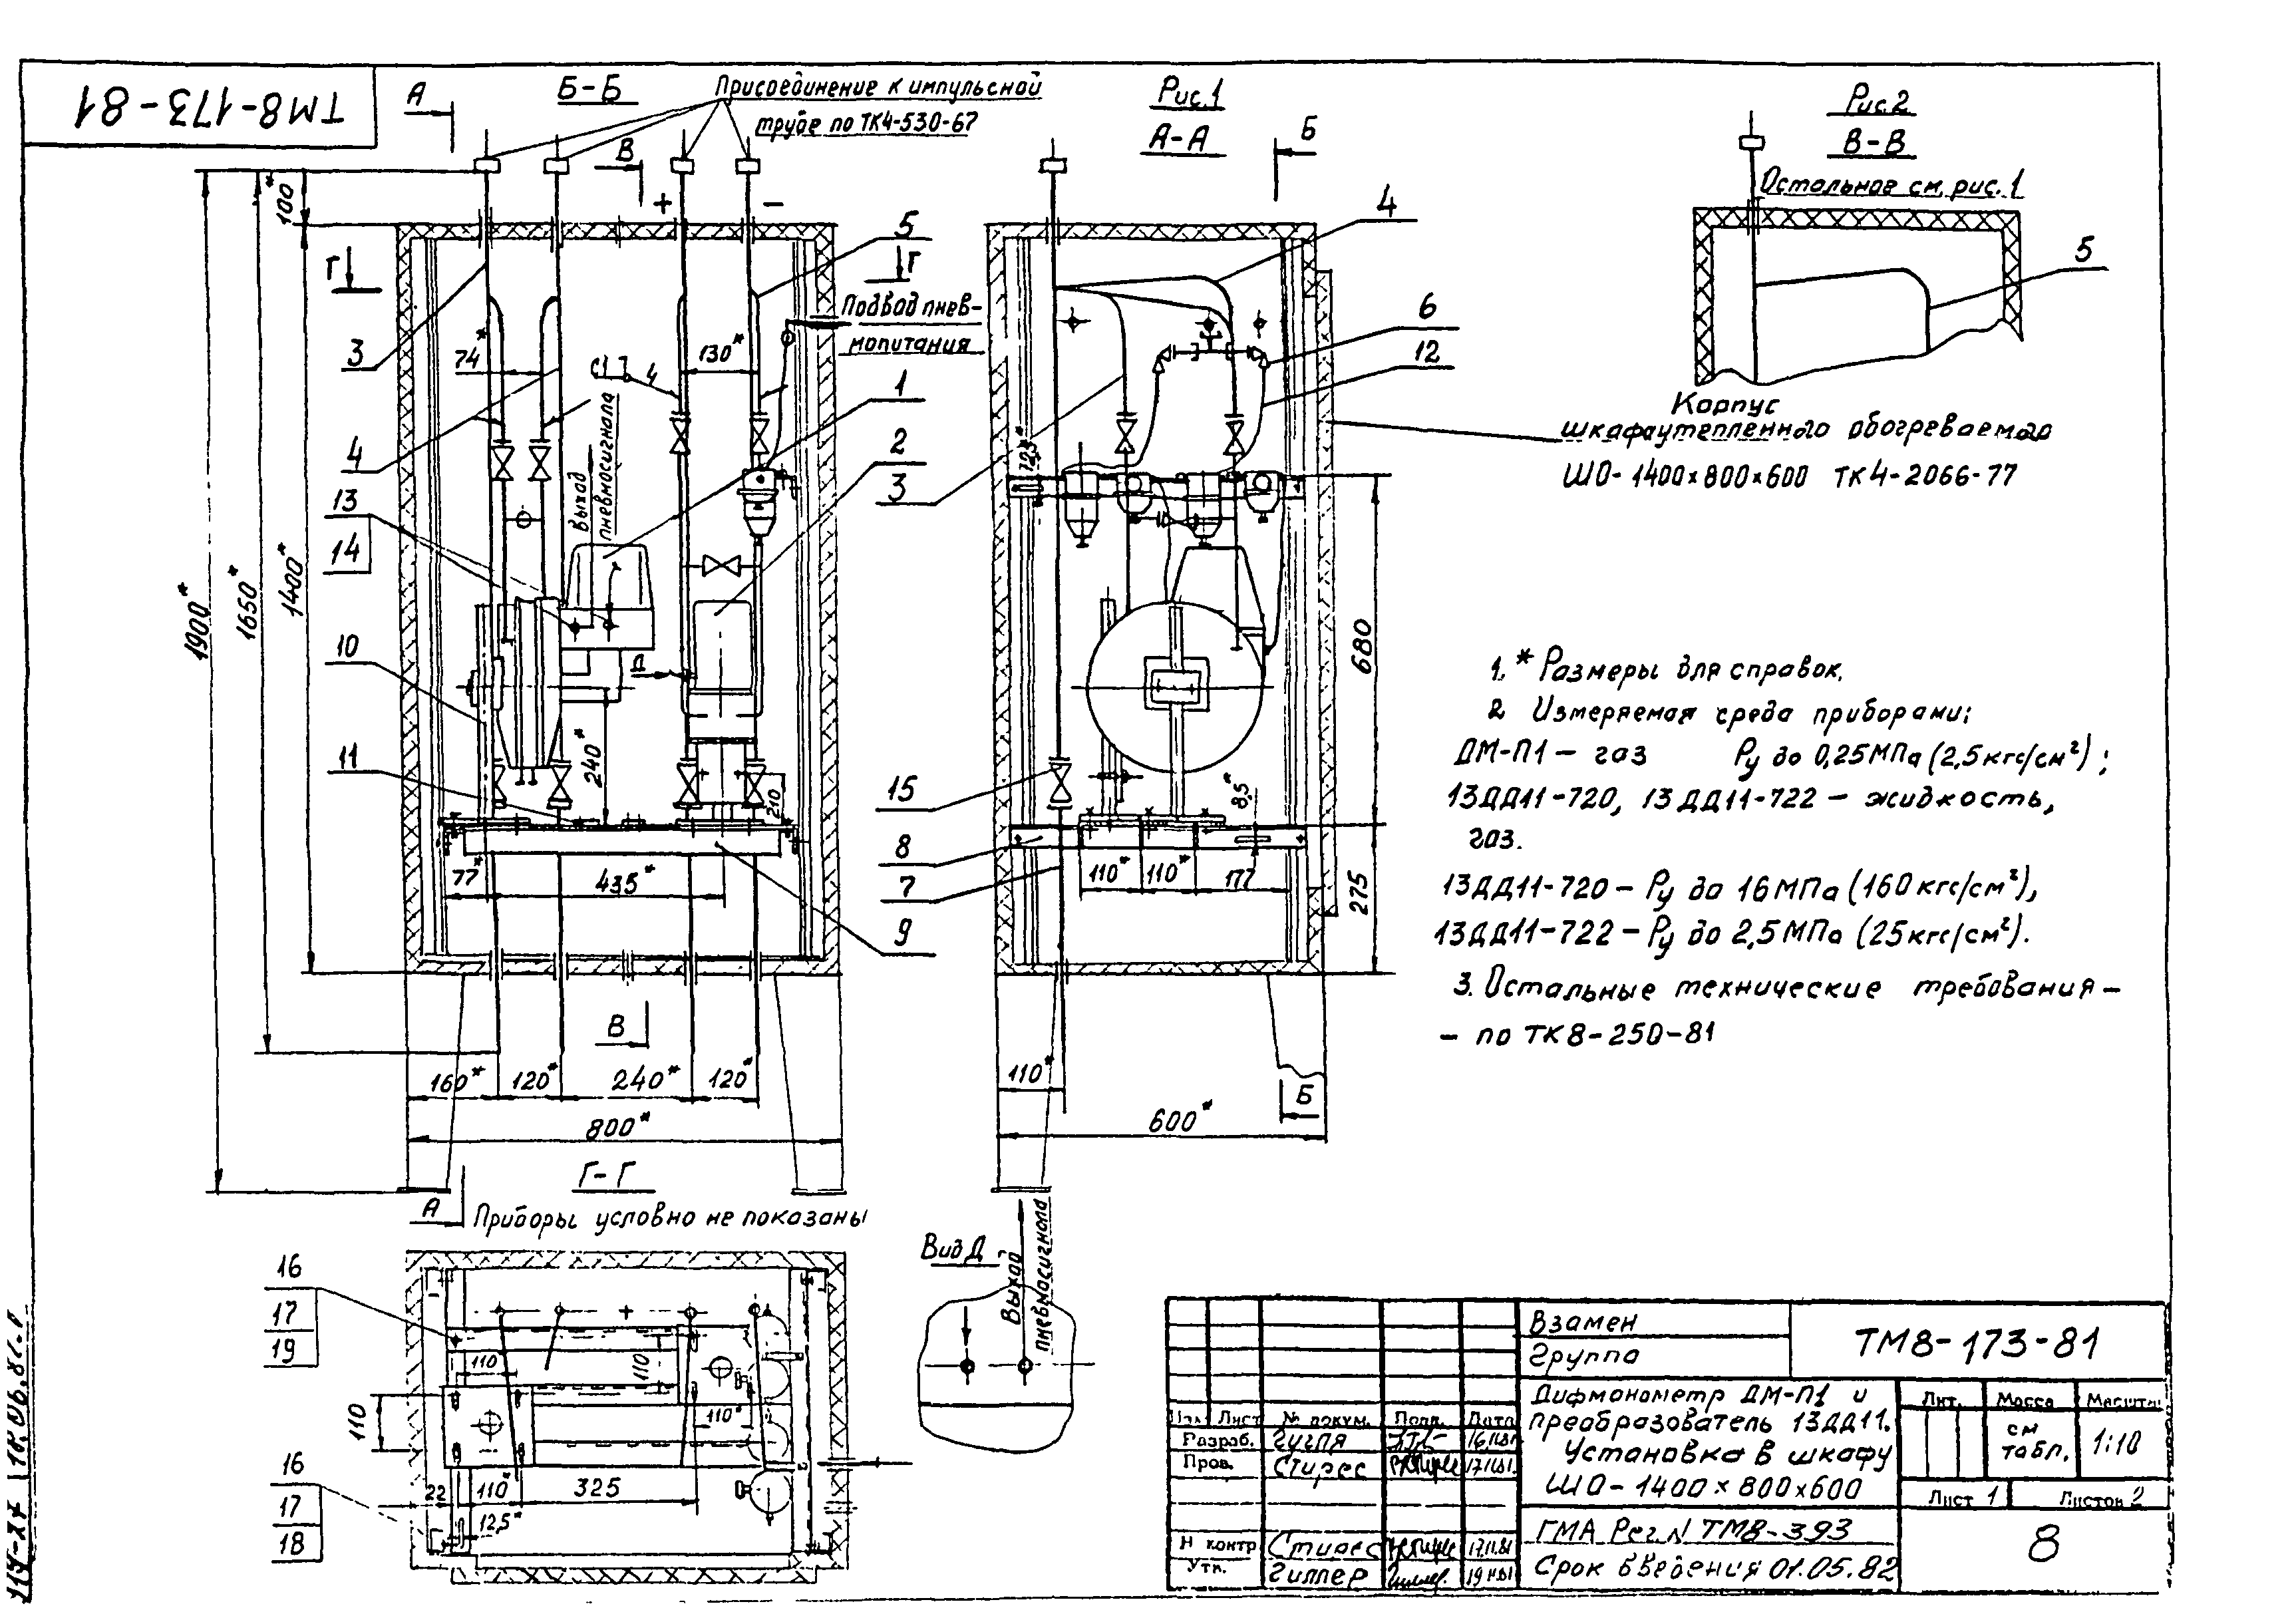 ТМ8-173-81
А
Б-Б
Присоединение к импульсной
трубе по ТК4-530-67
В
Рис.1
А-А
Б
Рис.2
В-В
Остальное см. рис.1
100*
+
−
5
4
5
Г
Г
Подвод пнев-
мопитания
6
3
74*
130*
12
4
1
Выход
пневмосигнала
2
3
4
13
14
Корпус
шкафа утепленного обогреваемого
ШО-1400×800×600 ТК4-2066-77
1900*
1650*
1400*
680
10
Д
240*
11
210
15
8,5*
8
7
77*
435*
110*
110*
177
275
9
В
160*
120*
240*
120*
110*
Б
800*
600*
1. * Размеры для справок.
2 Измеряемая среда приборами:
ДМ-П1 — газ Ру до 0,25МПа (2,5кгс/см²);
13ДД11-720, 13ДД11-722 — жидкость,
газ.
13ДД11-720 — Ру до 16МПа (160кгс/см²),
13ДД11-722 — Ру до 2,5МПа (25кгс/см²).
3. Остальные технические требования —
— по ТК8-250-81
Г-Г
А
Приборы условно не показаны
Вид Д
Выход
пневмосигнала
16
17
19
110
110
110*
110
22
110*
325
12,5*
16
17
18
Взамен
Группа
ТМ8-173-81
Дифманометр ДМ-П1 и
преобразователь 13ДД11.
Установка в шкафу
ШО-1400×800×600
Лит. Масса Масштаб
см
табл.
1:10
Лист 1 Листов 2
Изм Лист № докум. Подп. Дата
Разраб.
Пров. Стирес
Н контр Стирес 17.11.81
Утв. Гиллер 19.11.81
ГМА Рег.N ТМ8-393
Срок введения 01.05.82
8